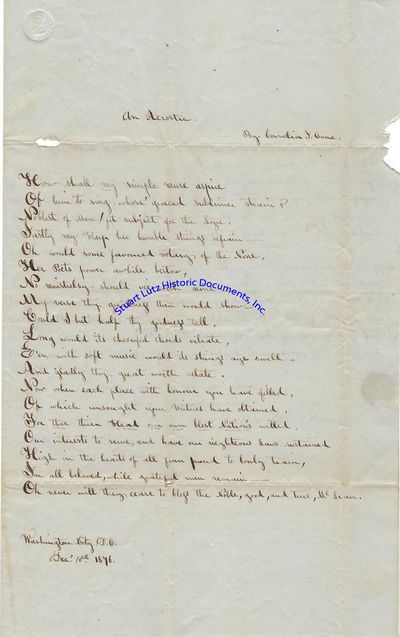 An Acrostic.
By Cornelia J.
How shall my simple muse aspire
Of him to song, whose graced sublimer strain?
Noblest of Men! fit subject for the Lyre,
Justly my Harp her humble strings refrain
Oh would some favoured votary of the Nine,
Her Poets power awhile bestow,
No minstrelsy should
My verse thy then would show
Could I but half thy goodness tell,
Long would its cheerful chords vibrate,
E'en with soft music would its strings age swell
And gladly thy great worth relate.
Now when each place with honour you have filled,
Of which unsought your Virtues have obtained,
For thee our own blest Nation's willed
Our interests to serve, and have our righteous Laws sustained
High in the hearts of all from proud to lowly
In all beloved, while grateful men remain
Oh never will they cease to bless the Noble, good, and true, McLean.
Washington City D.C.
Dec. 10th 1846.
Stuart Lutz Historic Documents, Inc.